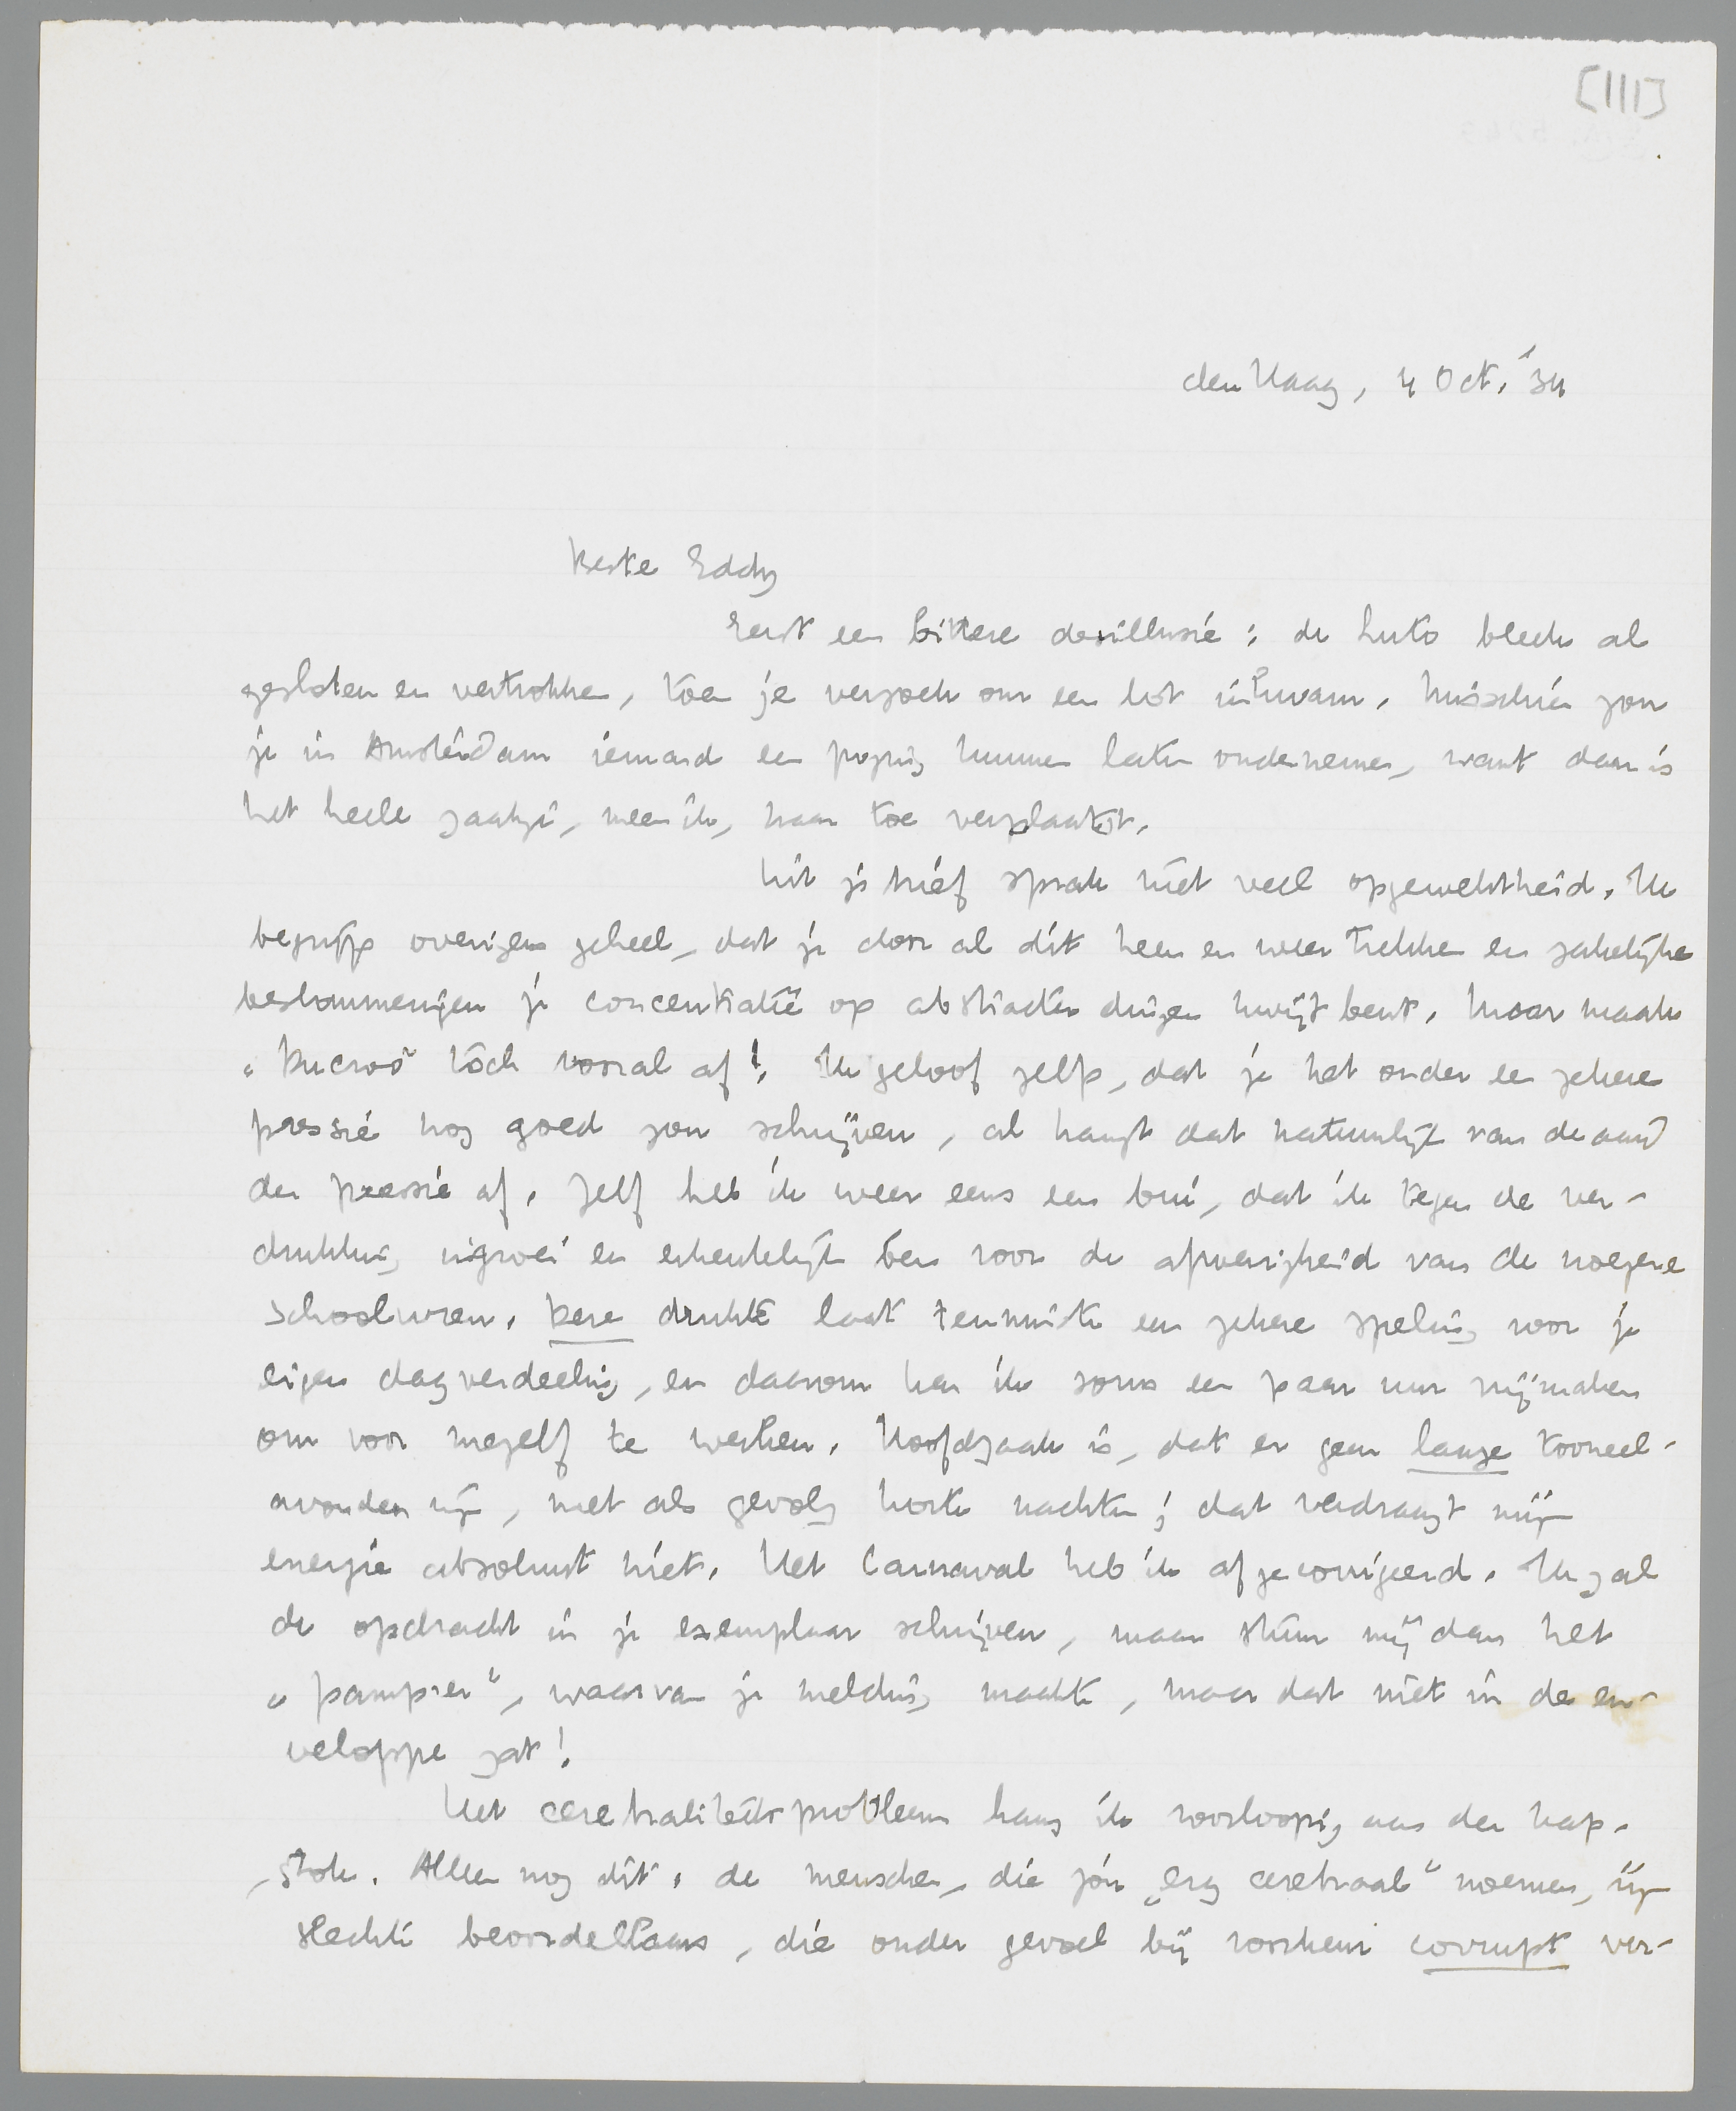 [111]
den Haag, 4 Oct. '34
Beste Eddy
Eerst een bittere desillusie: de Luto bleek al
gesloten en vertrokken, toen je verzoek om een lot inkwam. Misschien zou
je in Amsterdam iemand een poging kunnen laten ondernemen, want daar is
het heele zaakje, meen ik, naar toe verplaatst.
Uit je brief sprak niet veel opgewektheid. Ik
begrijp overigens geheel, dat je door al dit heen en weer trekken en zakelijke
beslommeringen je concentratie op abstracten dingen kwijt bent. Maar maak
„Ducroo" tòch vooral af! Ik geloof zelfs, dat je het onder een zekere
pressie nog goed zou schrijven, al hangt dat natuurlijk van de aard
der pressie af. Zelf heb ik weer eens een bui, dat ik tegen de ver-
drukking ingroei en erkentelijk ben voor de afwezigheid van de vroegere
schooluren. Deze drukte laat tenminste een zekere speling voor je
eigen dagverdeeling, en daarom kan ik soms een paar uur vrijmaken
om voor mezelf te werken. Hoofdzaak is, dat er geen lange tooneel-
avonden zijn, met als gevolg korte nachten; dat verdraagt mijn
energie absoluut niet. Het Carnaval heb ik afgecorrigeerd. Ik zal
de opdracht in je exemplaar schrijven, maar stuur mij dan het
„pampier", waarvan je melding maakte, maar dat niet in de en-
veloppe zat!
Het cerebraliteitsprobleem hang ik voorloopig aan den kap-
stok. Alleen nog dit: de menschen, die jóu „erg cerebraal" noemen, zijn
slechte beoordeelaars, die onder gevoel bij voorkeur corrupt ver-